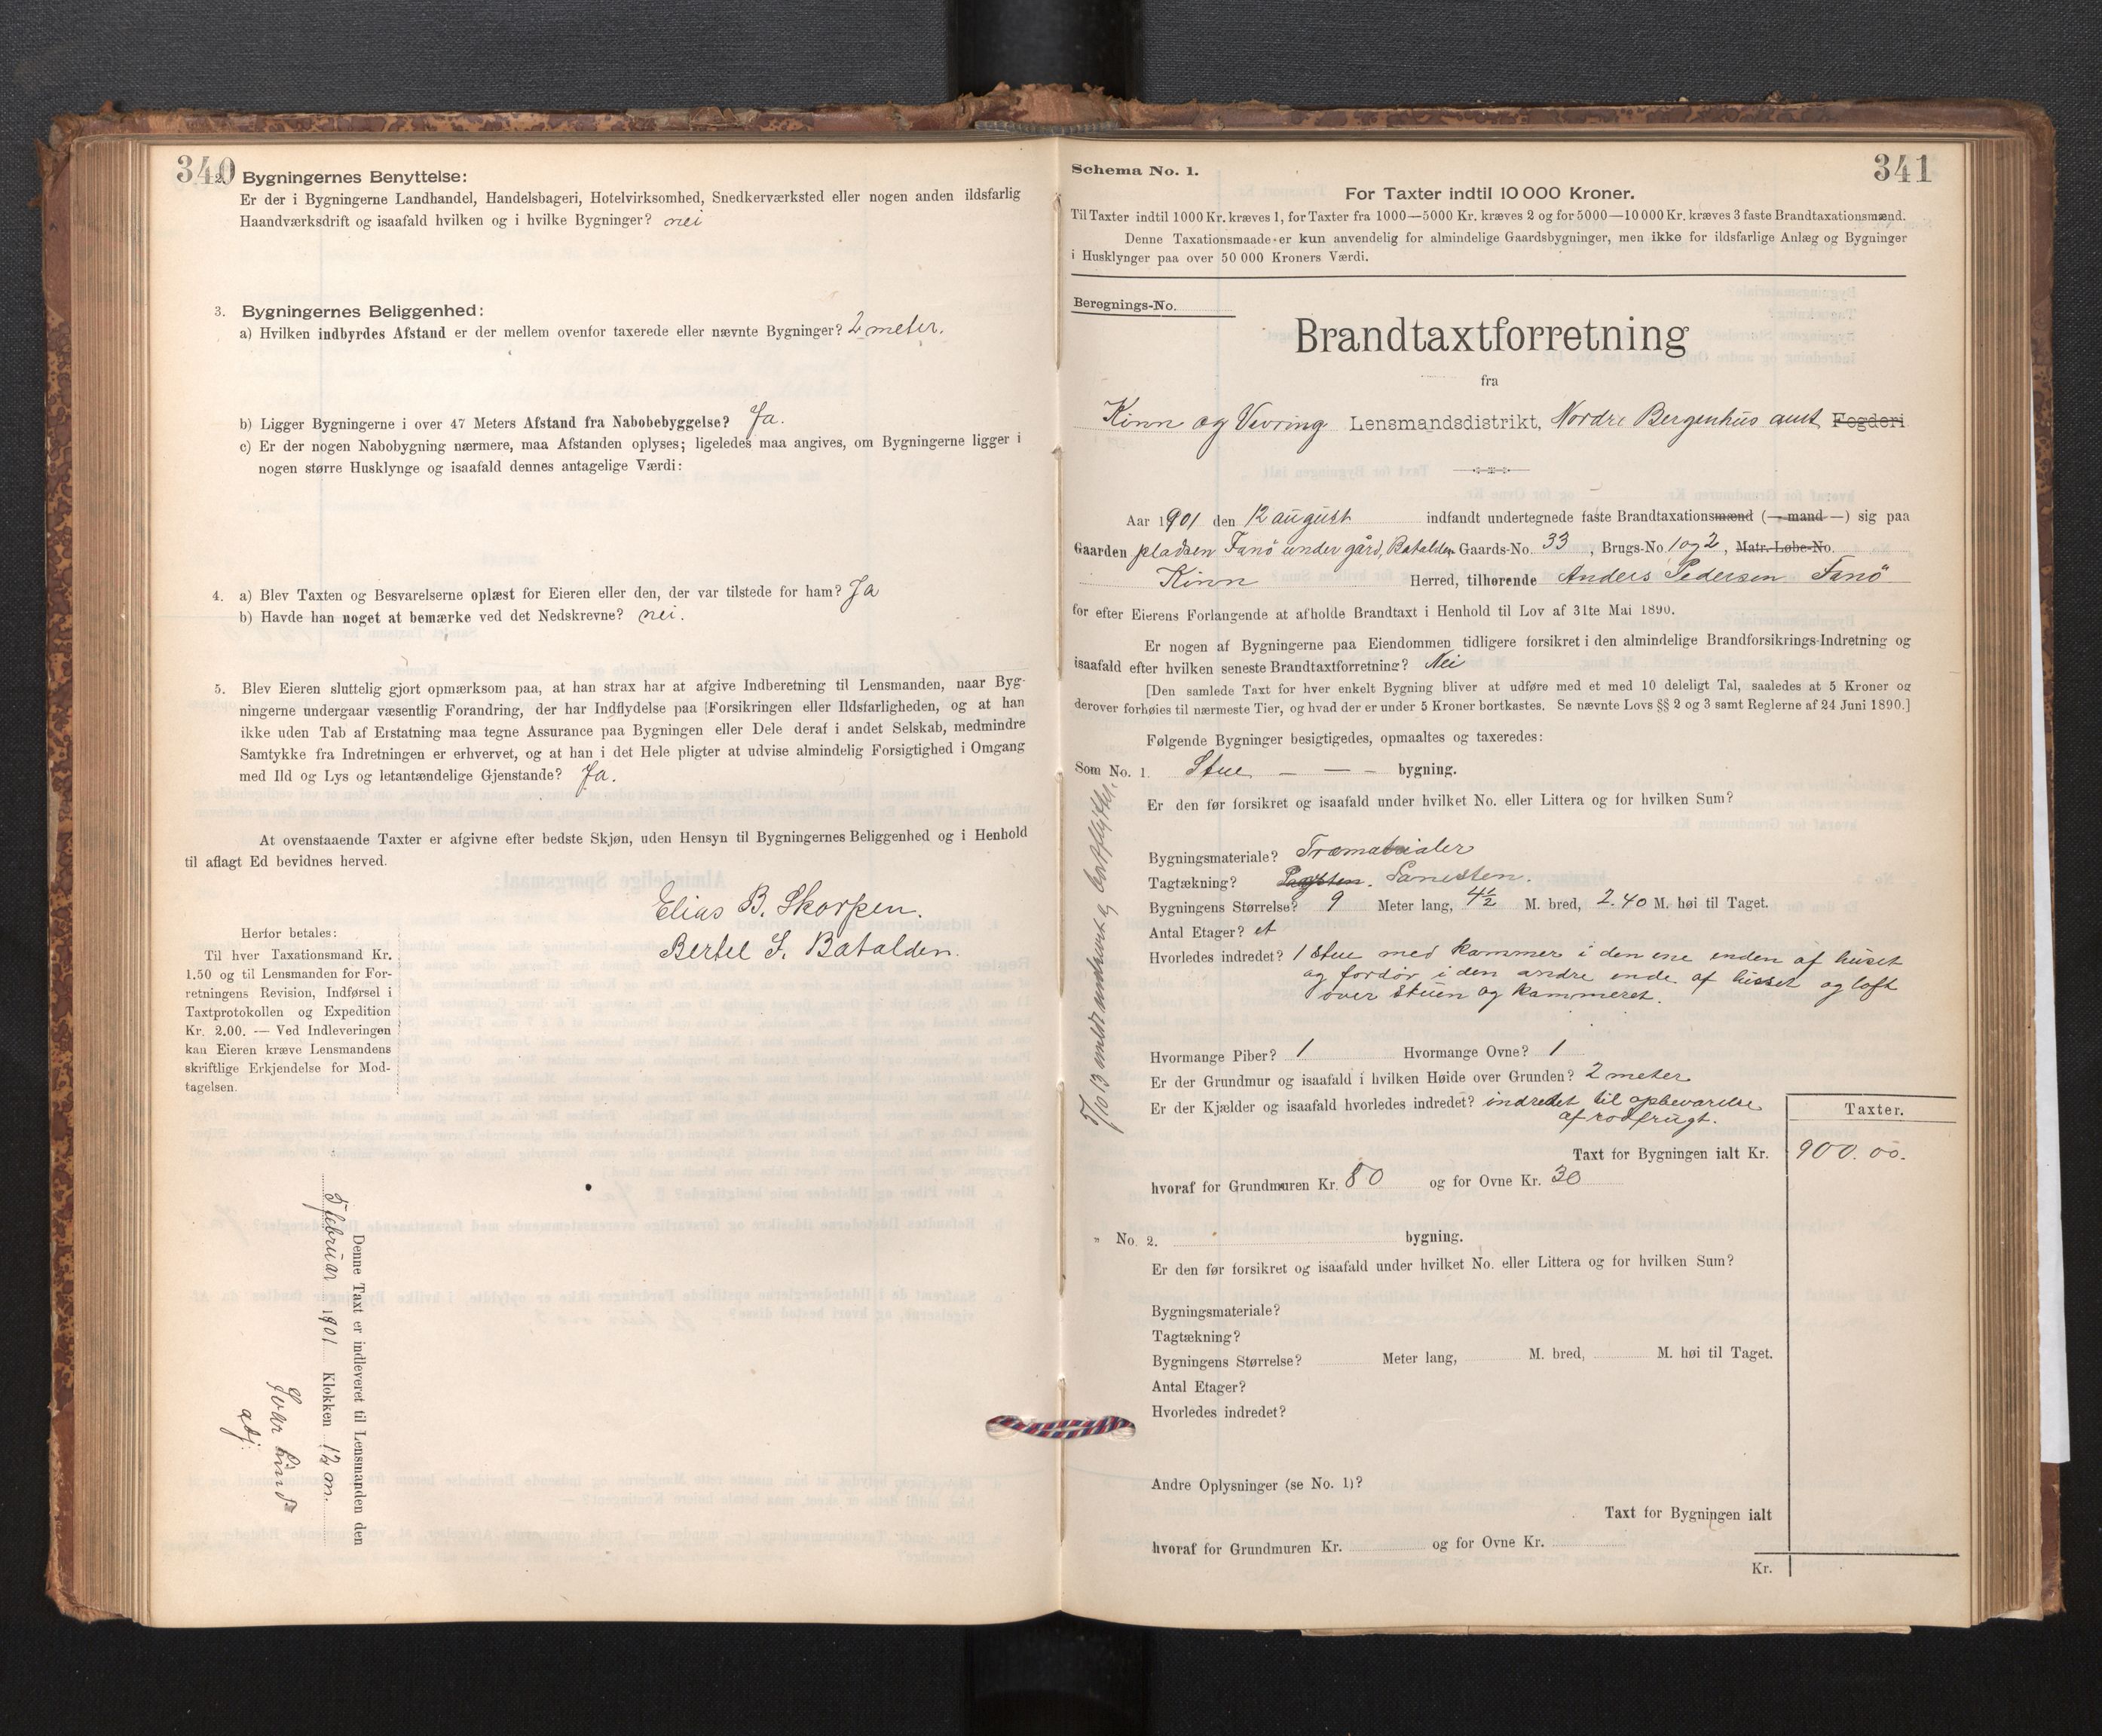 340
2. Bygningernes Benyttelse:
Er der i Bygningerne Landhandel, Handelsbageri, Hotelvirksomhed, Snedkerværksted eller nogen anden ildsfarlig
Haandværksdrift og isaafald hvilken og i hvilke Bygninger? nei
3. Bygningernes Beliggenhed:
a) Hvilken indbyrdes Afstand er der mellem ovenfor taxerede eller nævnte Bygninger? 2 meter.
b) Ligger Bygningerne i over 47 Meters Afstand fra Nabobebyggelse? Ja.
c) Er der nogen Nabobygning nærmere, maa Afstanden oplyses; ligeledes maa angives, om Bygningerne ligger i
nogen større Husklynge og isaafald dennes antagelige Værdi:
4. a) Blev Taxten og Besvarelserne oplæst for Eieren eller den, der var tilstede for ham? Ja
b) Havde han noget at bemærke ved det Nedskrevne? nei.
5. Blev Eieren sluttelig gjort opmærksom paa, at han strax har at afgive Indberetning til Lensmanden, naar Byg-
ningerne undergaar væsentlig Forandring, der har Indflydelse paa Forsikringen eller Ildsfarligheden, og at han
ikke uden Tab af Erstatning maa tegne Assurance paa Bygningen eller Dele deraf i andet Selskab, medmindre
Samtykke fra Indretningen er erhvervet, og at han i det Hele pligter at udvise almindelig Forsigtighed i Omgang
med Ild og Lys og letantændelige Gjenstande? Ja.
At ovenstaaende Taxter er afgivne efter bedste Skjøn, uden Hensyn til Bygningernes Beliggenhed og i Henhold
til aflagt Ed bevidnes herved.
Elias B. Skorpen.
Bertel J. Batalden.
Herfor betales:
Til hver Taxationsmand Kr.
1,50 og til Lensmanden for For-
retningens Revision, Indførsel i
Taxtprotokollen og Expedition
Kr. 2.00. — Ved Indleveringen
kan Eieren kræve Lensmandens
skriftlige Erkjendelse for Mod-
tagelsen.
Denne Taxt er indleveret til Lensmanden den
februar 1901 Klokken 12 m.
Ivar Lind
adj.
341
Schema No. 1.
For Taxter indtil 10 000 Kroner.
Til Taxter indtil 1000 Kr. kræves 1, for Taxter fra 1000—5000 Kr. kræves 2 og for 5000—10 000 Kr. kræves 3 faste Brandtaxationsmænd.
Denne Taxationsmaade er kun anvendelig for almindelige Gaardsbygninger, men ikke for ildsfarlige Anlæg og Bygninger
i Husklynger paa over 50 000 Kroners Værdi.
Beregnings-No.
Brandtaxtforretning
fra
Kinn og Vevring Lensmandsdistrikt, Nordre Bergenhus amt Fogderi
Aar 1901 den 12 august indfandt undertegnede faste Brandtaxationsmænd (— mand —) sig paa
Gaarden pladsen Fanö under gård, Batalden Gaards-No. 33, Brugs-No. 1 og 2, Matr.-Løbe-No.
Kinn Herred, tilhørende Anders Pedersen Fanö
for efter Eierens Forlangende at afholde Brandtaxt i Henhold til Lov af 31te Mai 1890.
Er nogen af Bygningerne paa Eiendommen tidligere forsikret i den almindelige Brandforsikrings-Indretning og
isaafald efter hvilken seneste Brandtaxtforretning? Nei
[Den samlede Taxt for hver enkelt Bygning bliver at udføre med et med 10 deleligt Tal, saaledes at 5 Kroner og
derover forhøies til nærmeste Tier, og hvad der er under 5 Kroner bortkastes. Se nævnte Lovs §§ 2 og 3 samt Reglerne af 24 Juni 1890.]
Følgende Bygninger besigtigedes, opmaaltes og taxeredes:
Som No. 1. Stue — — — bygning.
Er den før forsikret og isaafald under hvilket No. eller Littera og for hvilken Sum?
Bygningsmateriale? Træmaterialer
Tagtækning? Tagsten. Panesten.
Bygningens Størrelse? 9 Meter lang, 4½ M. bred, 2.40 M. høi til Taget.
Antal Etager? et
Hvorledes indredet? 1 stue med kammer i den ene enden af huset
og fordör i den andre ende af huset og loft
over stuen og kammeret.
Hvormange Piber? 1 Hvormange Ovne? 1
Er der Grundmur og isaafald i hvilken Høide over Grunden? 2 meter
Er der Kjælder og isaafald hvorledes indredet? indredet til opbevarelse
af rodfrugt.
Taxter.
Taxt for Bygningen ialt Kr. 900.00.
hvoraf for Grundmuren Kr. 80 og for Ovne Kr. 30
„ No. 2. bygning.
Er den før forsikret og isaafald under hvilket No. eller Littera og for hvilken Sum?
Bygningsmateriale?
Tagtækning?
Bygningens Størrelse? Meter lang, M. bred, M. høi til Taget.
Antal Etager?
Hvorledes indredet?
Andre Oplysninger (se No. 1)?
Taxt for Bygningen ialt
hvoraf for Grundmuren Kr. og for Ovne Kr.
Kr.